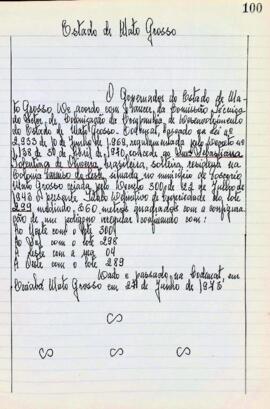 100
Estado de Mato Grosso
O Governador do Estado de Ma-
to Grosso, de acordo com o Parecer, da Comissão Técnica
do Setor de Colonização da Companhia de Desenvolvimento
do Estado de Mato Grosso. Codemat, baseado na lei nº
2.953 de 10 de Junho de 1.969, regulamentada pelo Decreto nº
1.138 de 30 de Abril de 1.970, concede ao Sebastiana
Tolentina de Oliveira brasileira, solteira, residente na
Colonia situada no município de
Mato Grosso criada pelo Decreto 300 de 22 de Julho de
1948 o presente Titulo Definitivo de Propriedade do lote
299 medindo, 560 metros quadrados com a configura
ção de um poligono irregular limitando com:
Ao Norte com o lote 300
Ao Sul com o lote 298
A Leste com a rua 04
A Oeste com o lote 289
Dado e passado na Codemat, em
Cuiabá Mato Grosso em 27 de Junho de 1975